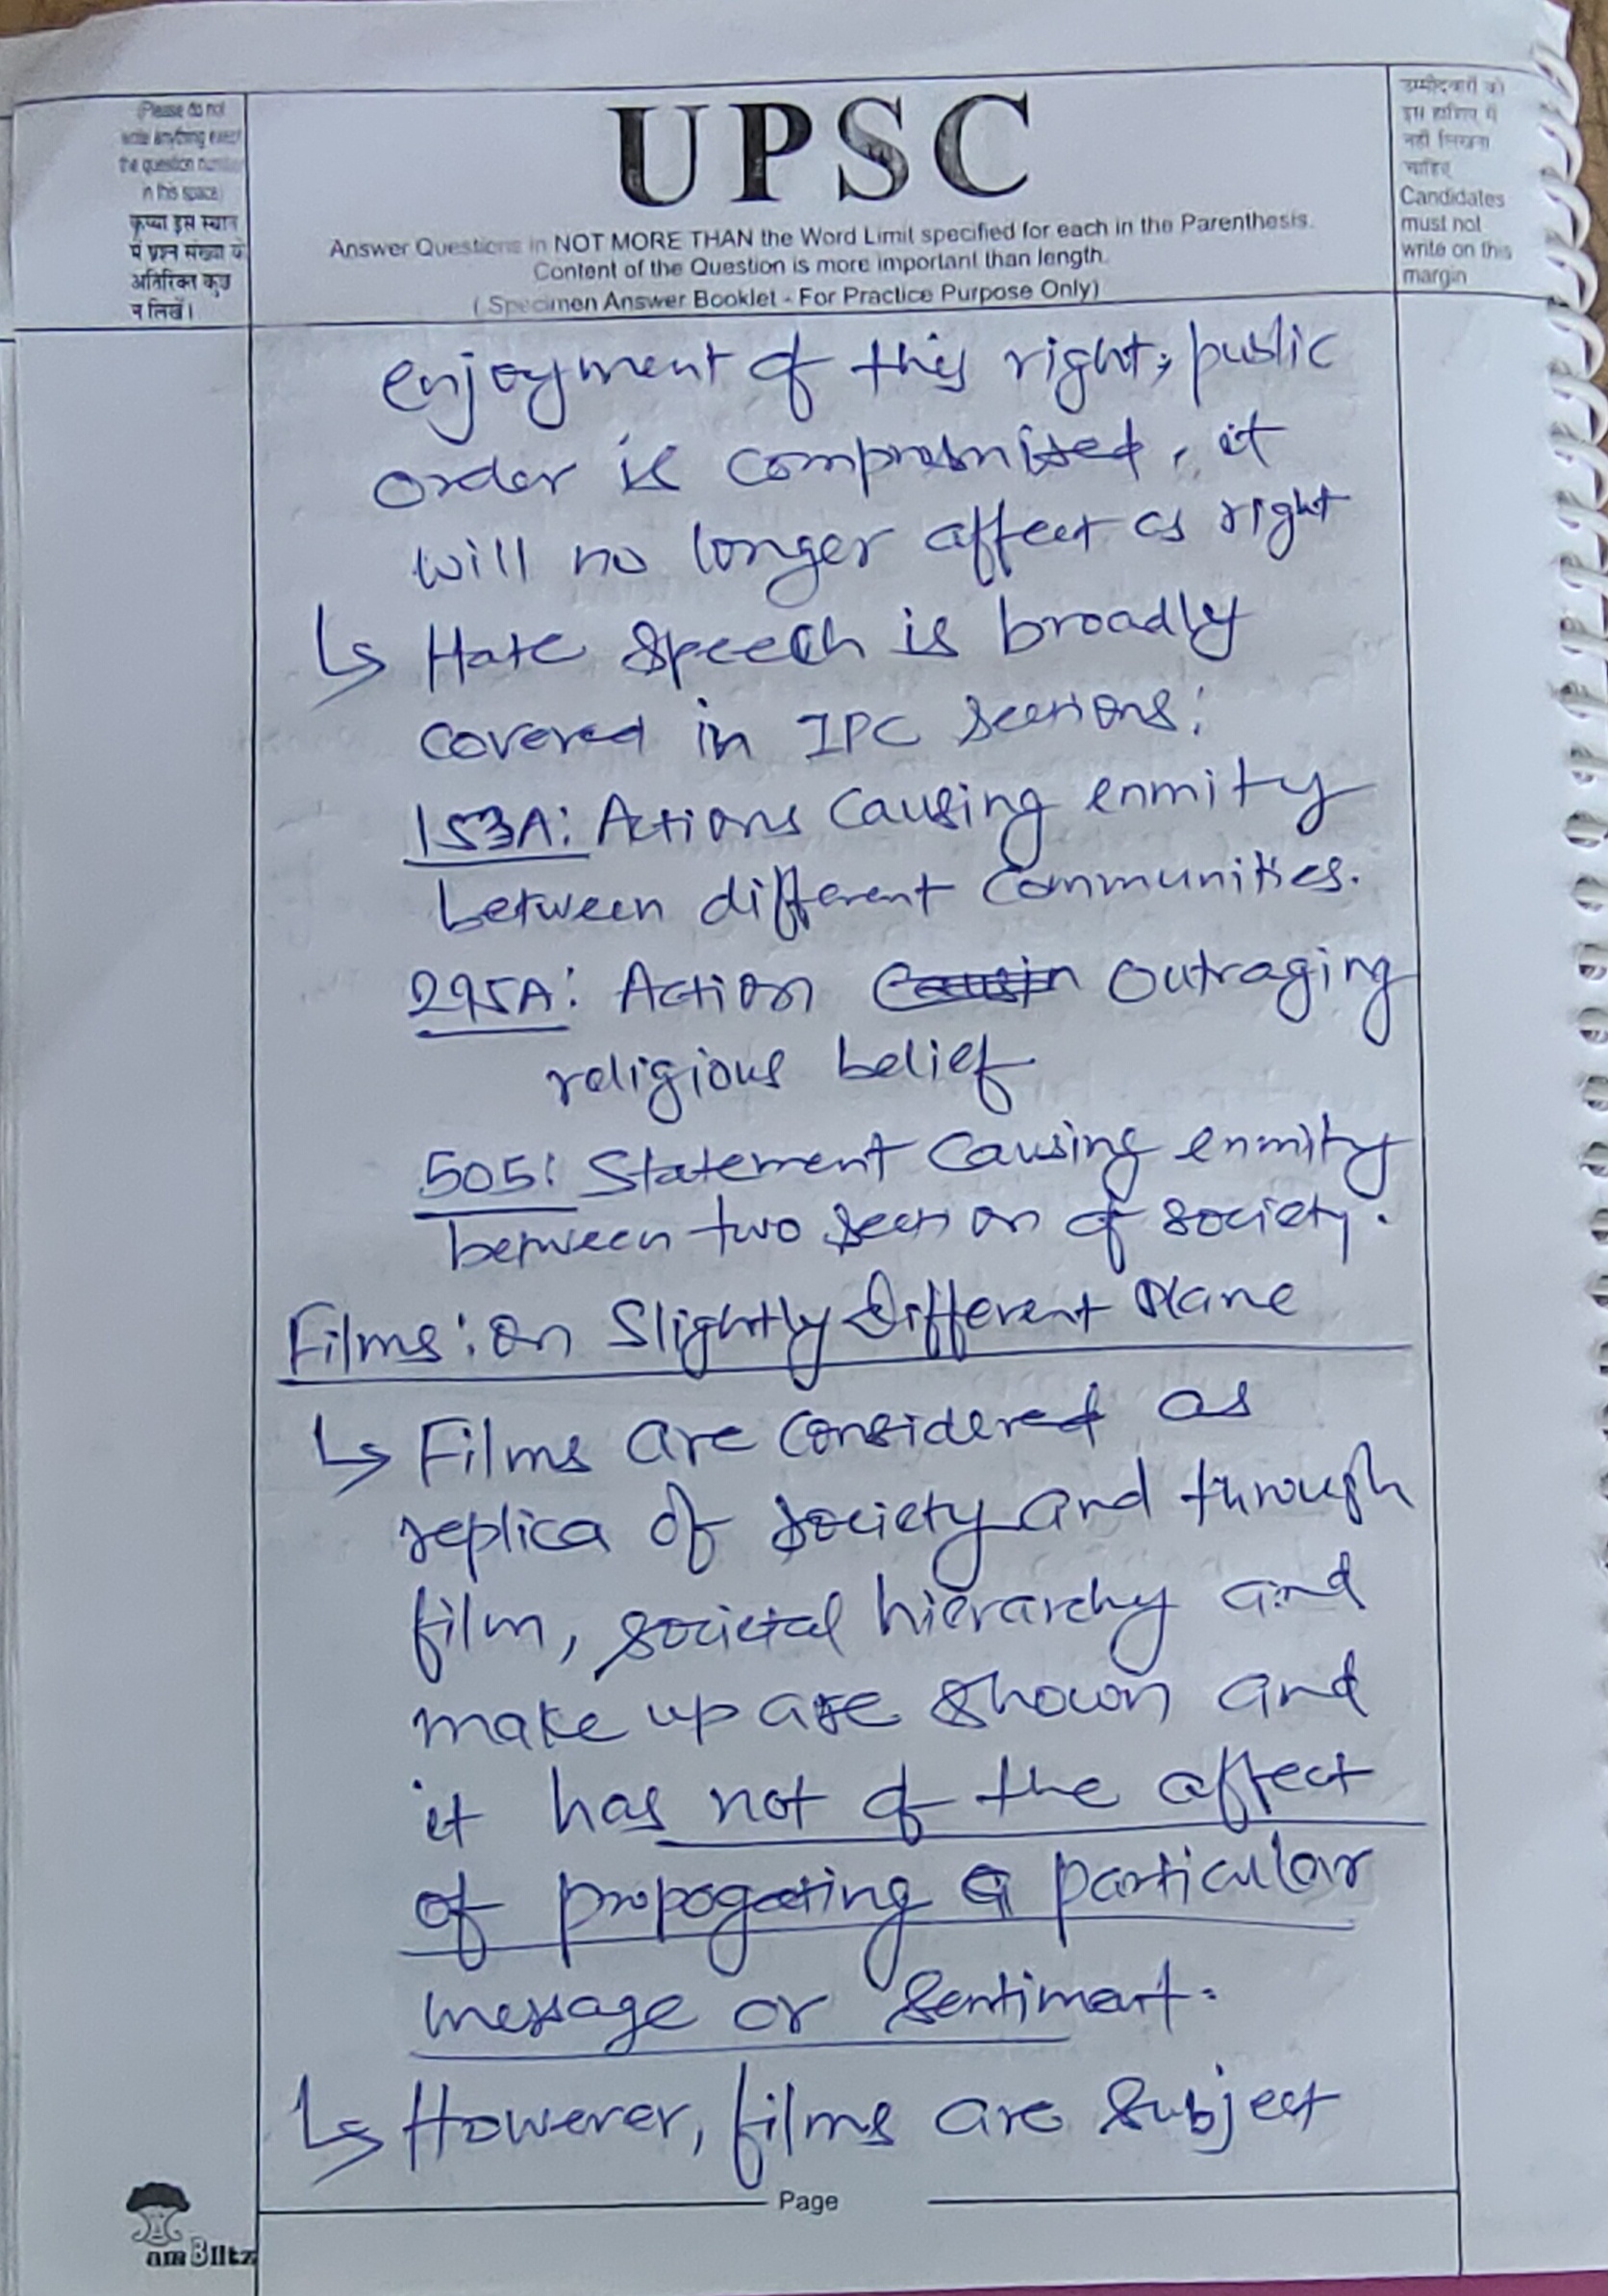 (Please do not
write anything except
the question number
in this space)
कृपया इस स्थान
में प्रश्न संख्या के
अतिरिक्त कुछ
न लिखें।
UPSC
Answer Questions in NOT MORE THAN the Word Limit specified for each in the Parenthesis.
Content of the Question is more important than length.
( Specimen Answer Booklet - For Practice Purpose Only)
उम्मीदवारों को
इस हाशिए में
नहीं लिखना
चाहिए
Candidates
must not
write on this
margin
enjoyment of this right, public
order is compromised, it
will no longer affect as right
↳ Hate Speech is broadly
covered in IPC sections:
153A: Actions Causing enmity
between different Communities.
295A: Action Outraging
religious belief
505: Statement Causing enmity
between two section of society.
Films: on Slightly Different Plane
↳ Films are Considered as
replica of society and through
film, societal hierarchy and
make up are shown and
it has not of the affect
of propogating a particular
message or sentiment.
↳ However, films are Subject
Page
am Blitz